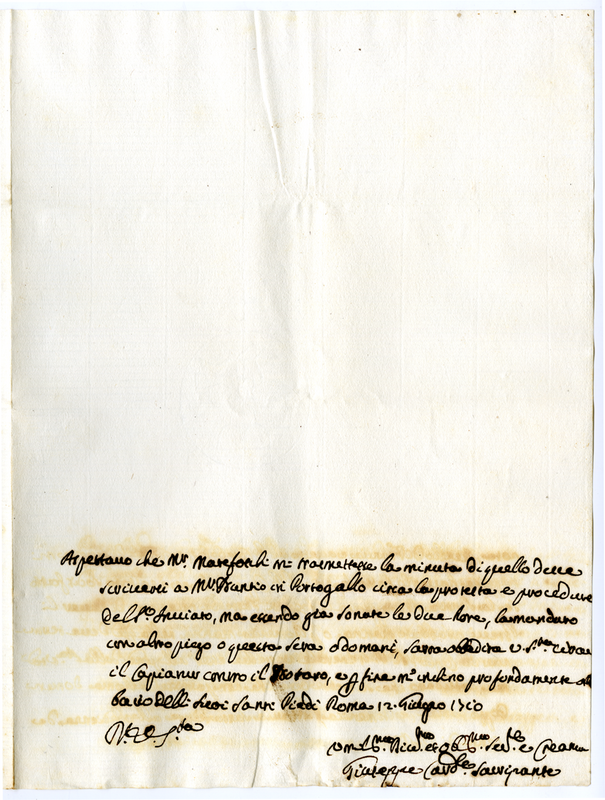 Aspettavo che Mr. Marefoschi mi trasmettesse la minuta di quello deve
scriversi a Mr. Nuntio di Portogallo circa la protesta e procedure
del S.r Inviato, ma essendo già sonate le due hore, la mandarò
con altro piego o questa sera o domani, sarà obbedita V. S.tà circa
il Capiatur contro il Notaro, e per fine m'inchino profondamente al
bacio delli suoi Santi Piedi Roma 12. Giugno 1710
Umil.mo Div.mo et Obb.mo Ser.re e Creatura
Giuseppe Card.le Sacripante